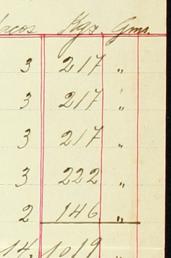 Sacos Kgs Gms.
3 217 "
3 217 "
3 217 "
3 222 "
2 146 "
14, 1019 "